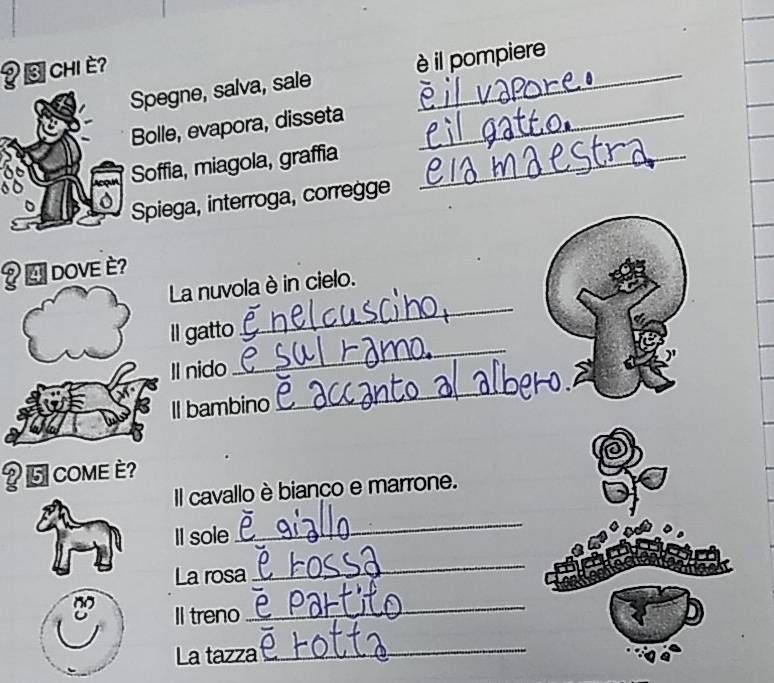 ? 3 CHI È?
è il pompiere
Spegne, salva, sale
è il vapore.
Bolle, evapora, disseta
e il gatto.
Soffia, miagola, graffia
e la maestra.
Spiega, interroga, corregge
ACQUA
? 4 DOVE È?
La nuvola è in cielo.
Il gatto è nel cuscino.
Il nido è sul ramo.
Il bambino è accanto al albero.
? 5 COME È?
Il cavallo è bianco e marrone.
Il sole è giallo
La rosa è rossa
Il treno è partito
La tazza è rotta